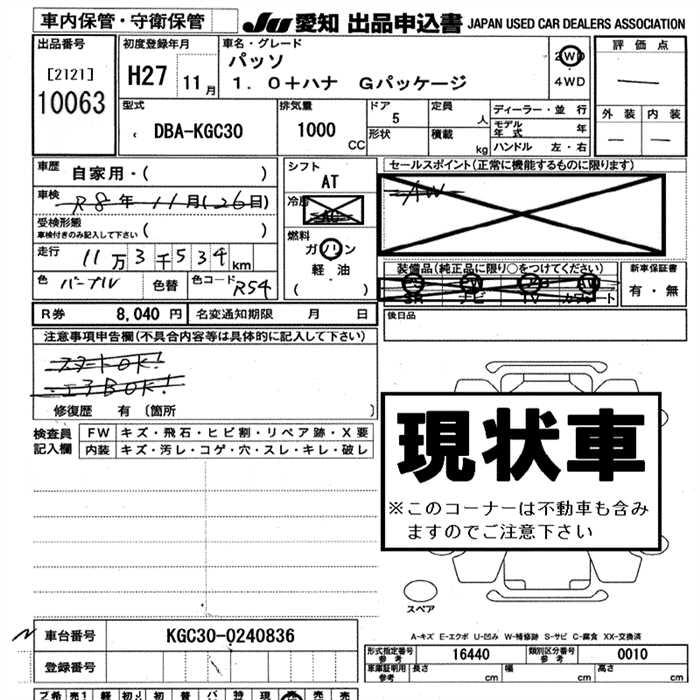 車内保管・守衛保管
JU 愛知 出品申込書 JAPAN USED CAR DEALERS ASSOCIATION
出品番号
[2121]
10063
初度登録年月
H27 11月
車名・グレード
パッソ
1.0+ハナ Gパッケージ
2WD
4WD
評価点
外装 内装
型式
DBA-KGC30
排気量
1000 CC
ドア
5
形状
定員 人
積載 kg
ディーラー・並行
モデル年式 年
ハンドル 左・右
車歴 自家用・( )
車検 R8年11月(26日)
受検形態
車検付きのみ記入して下さい ( )
走行 11万3千534km
色 パープル 色替 色コード R54
シフト
AT
冷房
AC
燃料
ガソリン
軽油
( )
セールスポイント(正常に機能するものに限ります)
AW
装備品(純正品に限り○をつけてください)
SR ナビ TV カワシート
新車保証書
有・無
R券 8,040円 名変通知期限 月 日
後日品
注意事項申告欄(不具合内容等は具体的に記入して下さい)
スタートOK!
エアBOK!
修復歴 有〔箇所 〕
検査員記入欄
FW キズ・飛石・ヒビ割・リペア跡・X要
内装 キズ・汚レ・コゲ・穴・スレ・キレ・破レ
現状車
※このコーナーは不動車も含み
ますのでご注意下さい
スペア
A-キズ E-エクボ U-凹み W-補修跡 S-サビ C-腐食 XX-交換済
車台番号 KGC30-0240836
登録番号
形式指定番号 参考 16440 類別区分番号 参考 0010
車庫証明用 参考 長さ cm 幅 cm 高さ cm